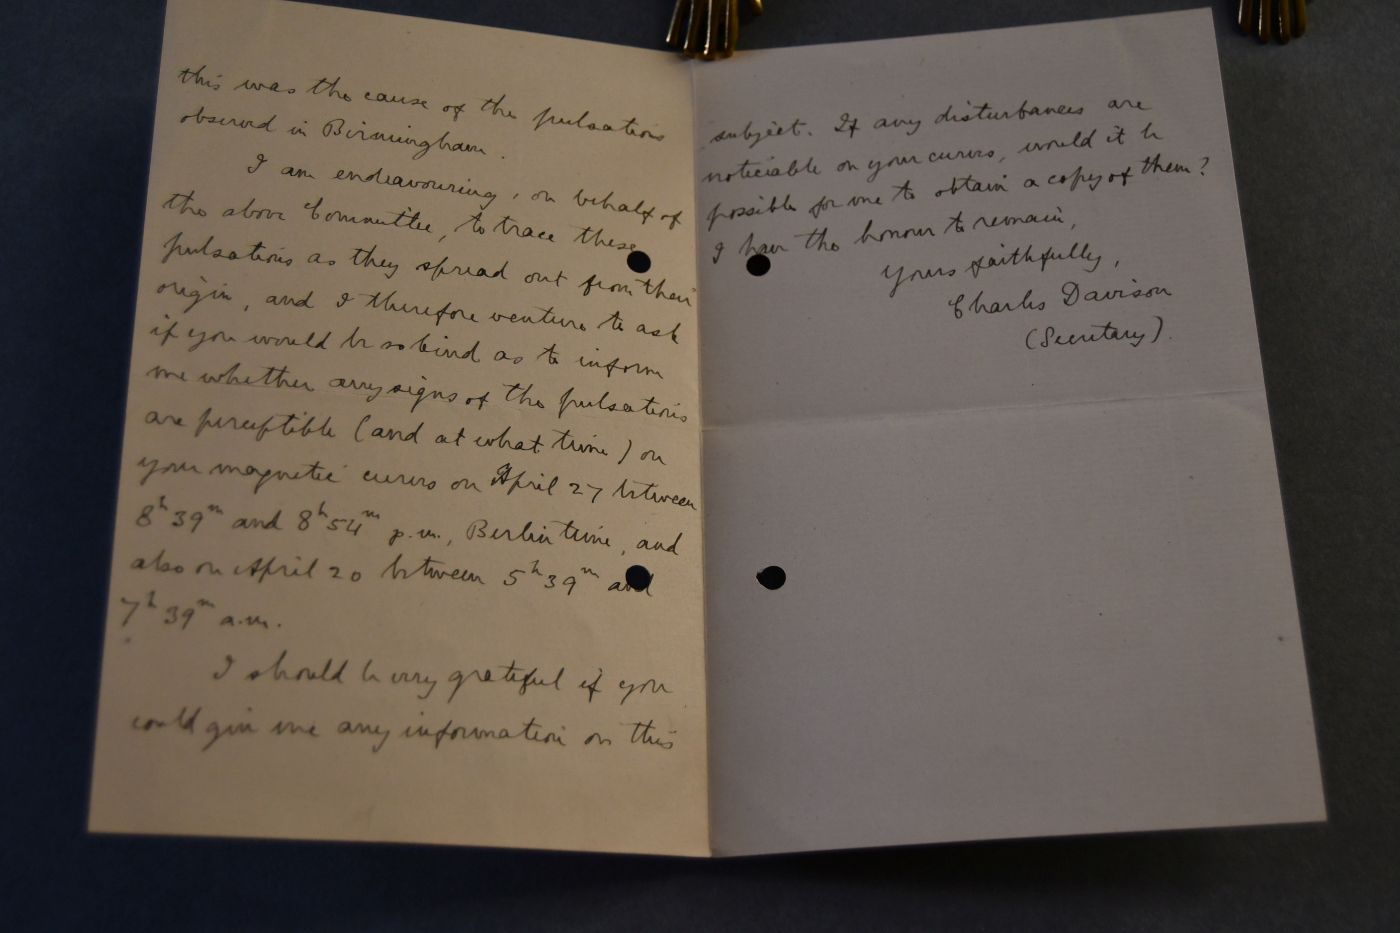 this was the cause of the pulsations
observed in Birmingham.
I am endeavouring, on behalf of
the above Committee, to trace these
pulsations as they spread out from their
origin, and I therefore venture to ask
if you would be so kind as to inform
me whether any signs of the pulsations
are perceptible (and at what time) on
your magnetic curves on April 27 between
8ʰ39ᵐ and 8ʰ54ᵐ p.m., Berlin time, and
also on April 20 between 5ʰ39ᵐ and
7ʰ39ᵐ a.m.
I should be very grateful if you
could give me any information on this
subject. If any disturbances are
noticiable on your curves, would it be
possible for me to obtain a copy of them?
I have the honour to remain,
Yours faithfully,
Charles Davison
(Secretary).